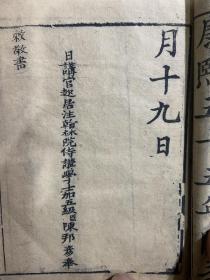 康熙五十五年
月十九日
日講官起居注翰林院侍講學士加五級臣陳邦彥奉
敕敬書